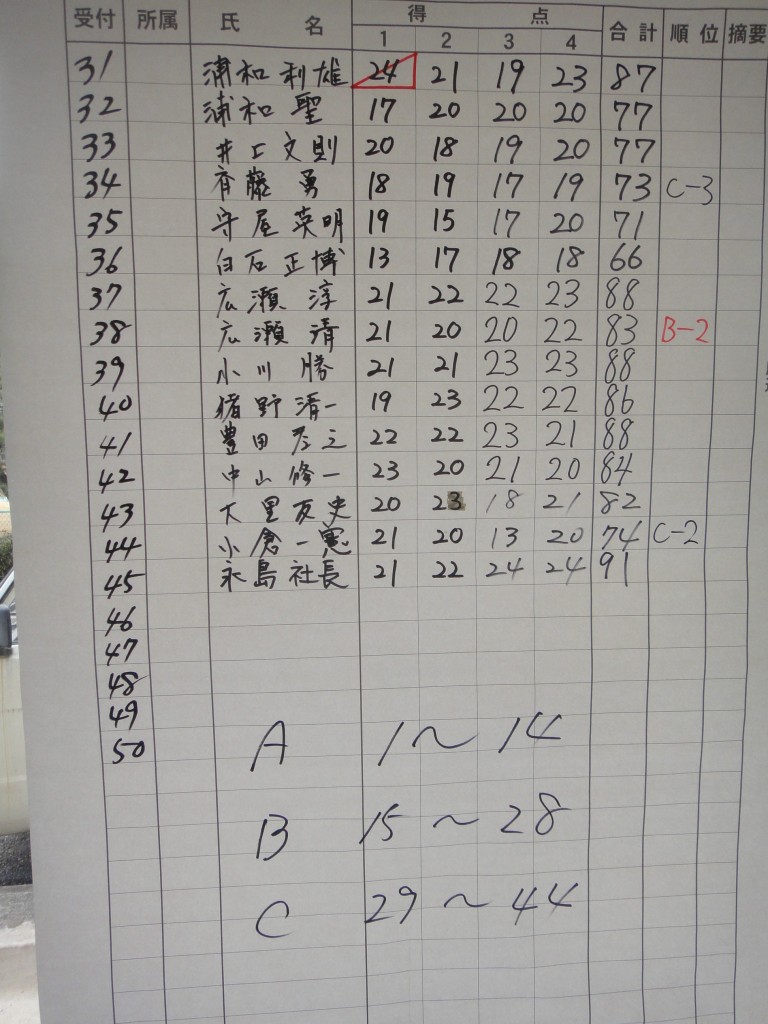 受付 所属 氏名 得点 合計 順位 摘要
1 2 3 4
31 浦和利雄 24 21 19 23 87
32 浦和聖 17 20 20 20 77
33 井上文則 20 18 19 20 77
34 斉藤勇 18 19 17 19 73 C-3
35 守屋英明 19 15 17 20 71
36 白石正博 13 17 18 18 66
37 広瀬淳 21 22 22 23 88
38 広瀬清 21 20 20 22 83 B-2
39 小川勝 21 21 23 23 88
40 猪野清一 19 23 22 22 86
41 豊田 22 22 23 21 88
42 中山修一 23 20 21 20 84
43 大里友史 20 23 18 21 82
44 小倉一憲 21 20 13 20 74 C-2
45 永島社長 21 22 24 24 91
46
47
48
49
50
A 1~14
B 15~28
C 29~44